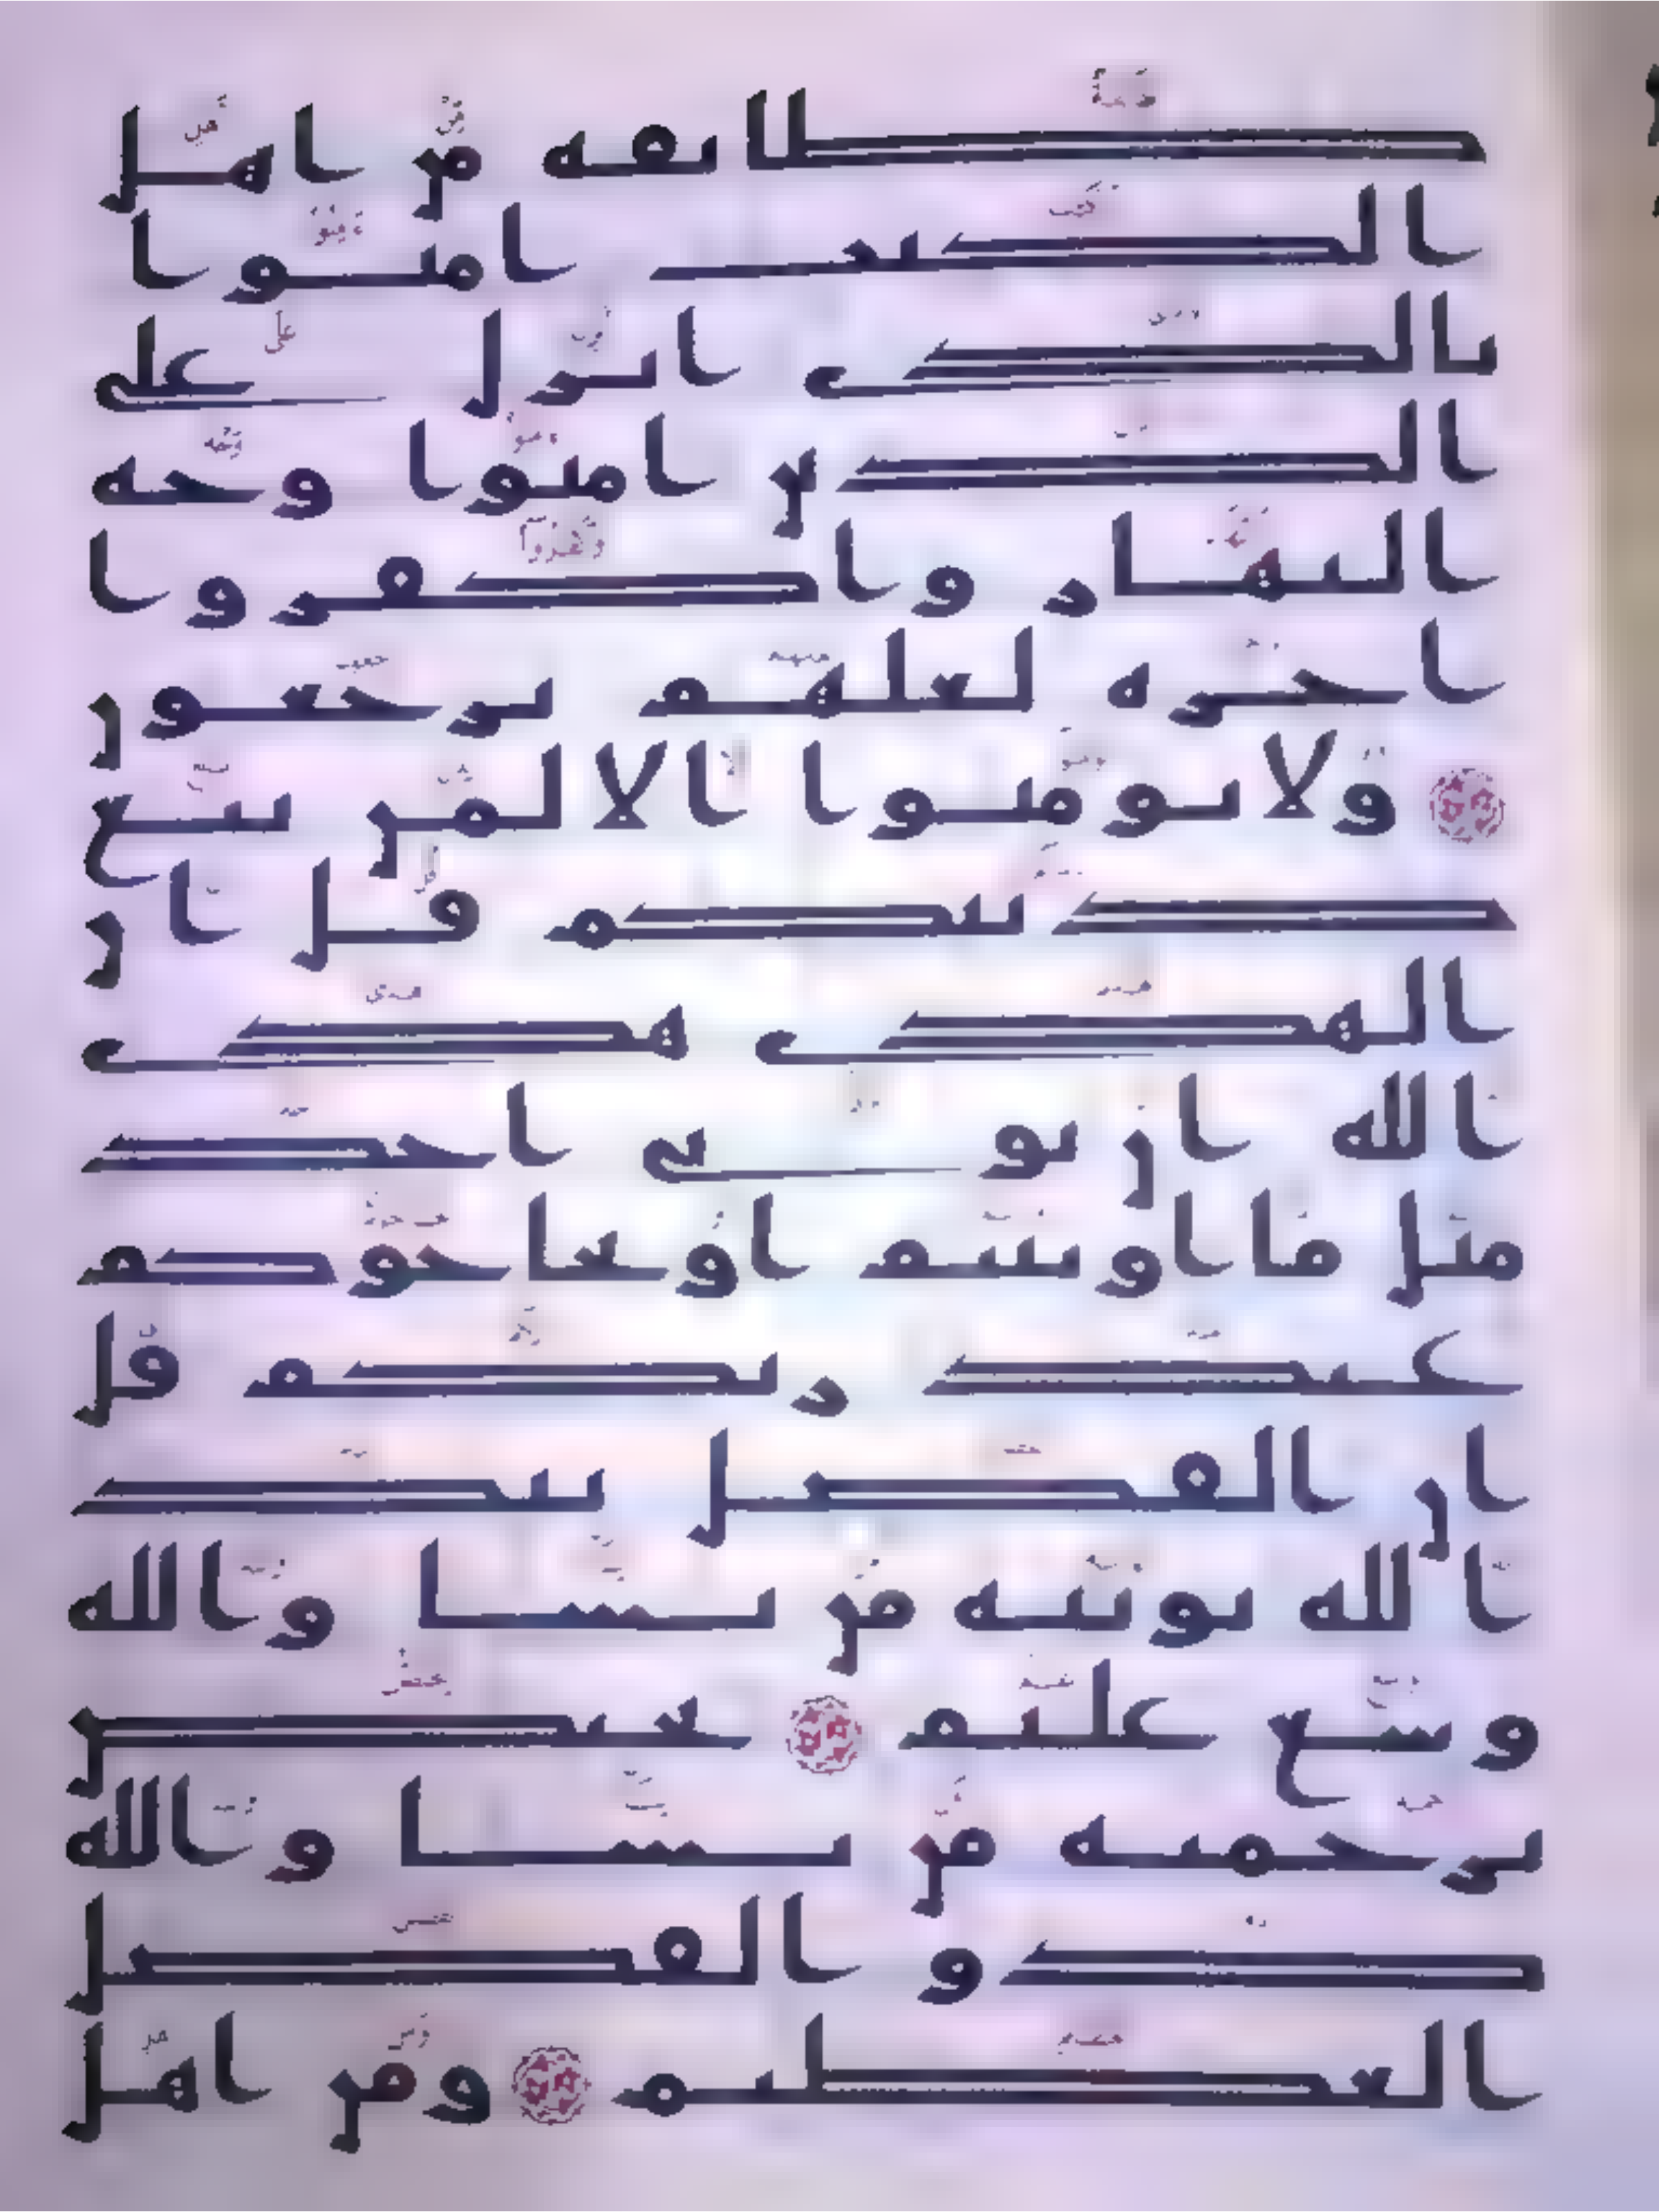 طايفه من اهل
الكتب امنوا
بالذي انزل على
الذين امنوا وجه
النهار واكفروا
اخره لعلهم يرجعون
ولا تومنوا الا لمن تبع
دينكم قل ان
الهدى هدى
الله ان يوتى احد
مثل ما اوتيتم او يحاجوكم
عند ربكم قل
ان الفضل بيد
الله يوتيه من يشا والله
وسع عليم يختص
برحمته من يشا والله
ذو الفضل
العظيم ومن اهل